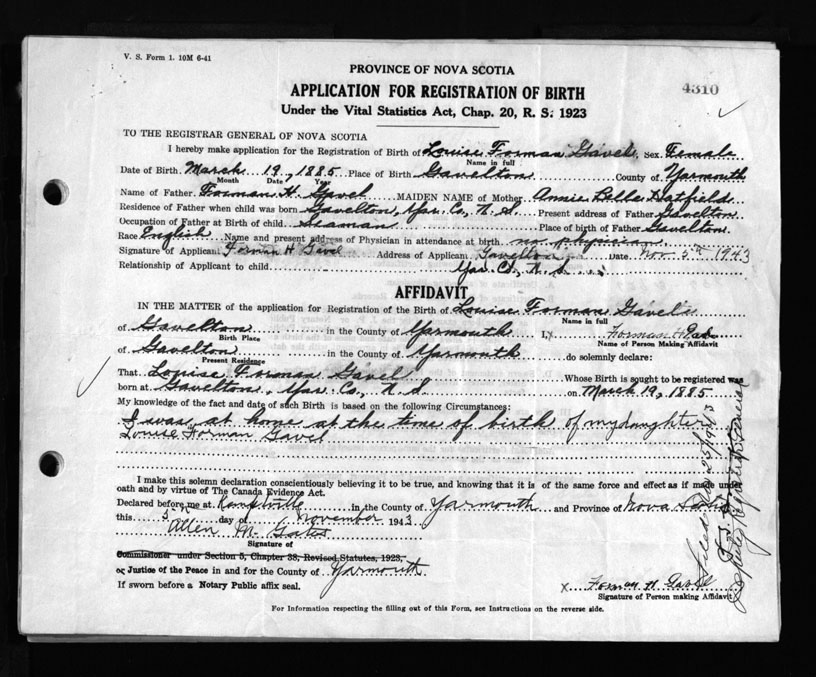 V. S. Form 1. 10M 6-41
PROVINCE OF NOVA SCOTIA
4310
APPLICATION FOR REGISTRATION OF BIRTH
Under the Vital Statistics Act, Chap. 20, R. S. 1923
TO THE REGISTRAR GENERAL OF NOVA SCOTIA
I hereby make application for the Registration of Birth of Louise Forman Gavel Sex Female
Name in full
Date of Birth March 19, 1885 Place of Birth Gavelton County of Yarmouth
Month Date Year
Name of Father Forman H. Gavel MAIDEN NAME of Mother Annie Belle Hatfield
Residence of Father when child was born Gavelton, Yar. Co., N. S. Present address of Father Gavelton
Occupation of Father at Birth of child Seaman Place of birth of Father Gavelton
Race English Name and present address of Physician in attendance at birth no physician
Signature of Applicant Forman H Gavel Address of Applicant Gavelton Date Nov 5th 1943
Relationship of Applicant to child Yar. Co., N. S.
AFFIDAVIT
IN THE MATTER of the application for Registration of the Birth of Louise Forman Gavel
Name in full
of Gavelton in the County of Yarmouth I, x Forman H Gavel
Birth Place Name of Person Making Affidavit
of Gavelton in the County of Yarmouth do solemnly declare:
Present Residence
That Louise Forman Gavel Whose Birth is sought to be registered was
born at Gavelton, Yar. Co., N. S. on March 19, 1885
My knowledge of the fact and date of such Birth is based on the following Circumstances:
I was at home at the time of birth of my daughter
Louise Forman Gavel
I make this solemn declaration conscientiously believing it to be true, and knowing that it is of the same force and effect as if made under
oath and by virtue of The Canada Evidence Act.
Declared before me at Kemptville in the County of Yarmouth and Province of Nova Scotia
this 5th day of November 1943
Allen M. Gates
Signature of
Commissioner under Section 5, Chapter 38, Revised Statutes, 1923,
or Justice of the Peace in and for the County of Yarmouth
If sworn before a Notary Public affix seal.
x Forman H Gavel
Signature of Person making Affidavit
For Information respecting the filling out of this Form, see Instructions on the reverse side.
Deputy Registrar General